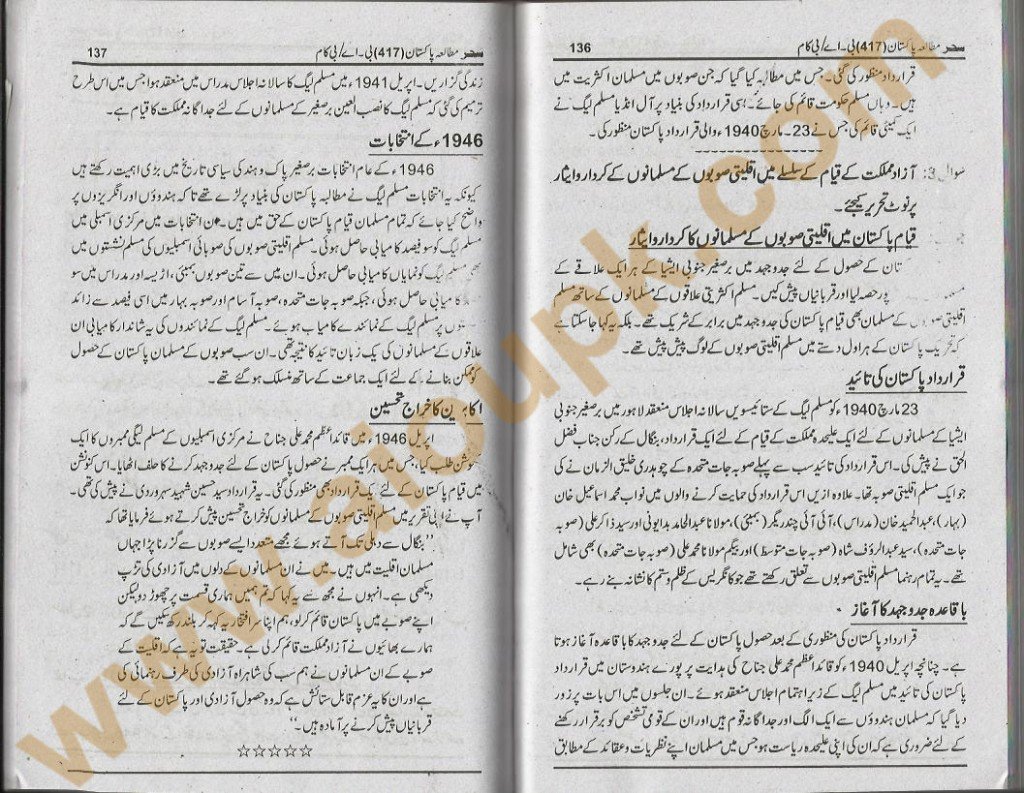 سحر مطالعہ پاکستان (417) بی۔اے/بی کام 136
قرارداد منظور کی گئی۔ جس میں مطالبہ کیا گیا کہ جن صوبوں میں مسلمان اکثریت میں
ہیں۔ وہاں مسلم حکومت قائم کی جائے۔ اسی قرارداد کی بنیاد پر آل انڈیا مسلم لیگ نے
ایک کمیٹی قائم کی جس نے 23۔ مارچ 1940ء والی قرارداد پاکستان منظور کی۔
سوال 3: آزاد مملکت کے قیام کے سلسلے میں اقلیتی صوبوں کے مسلمانوں کے کردار و ایثار
پر نوٹ تحریر کیجئے۔
قیام پاکستان میں اقلیتی صوبوں کے مسلمانوں کا کردار و ایثار
کے حصول کے لئے جدوجہد میں برصغیر جنوبی ایشیا کے ہر ایک علاقے کے
حصہ لیا اور قربانیاں پیش کیں۔ مسلم اکثریتی علاقوں کے مسلمانوں کے ساتھ مسلم
اقلیتی صوبوں کے مسلمان بھی قیام پاکستان کی جدوجہد میں برابر کے شریک تھے۔ بلکہ یہ کہا جا سکتا ہے
کہ تحریک پاکستان کے ہراول دستے میں مسلم اقلیتی صوبوں کے لوگ پیش پیش تھے۔
قرارداد پاکستان کی تائید
23 مارچ 1940ء کو مسلم لیگ کے ستائیسویں سالانہ اجلاس منعقد لاہور میں برصغیر جنوبی
ایشیا کے مسلمانوں کے لئے ایک علیحدہ مملکت کے قیام کے لئے ایک قرارداد، بنگال کے رکن جناب فضل
الحق نے پیش کی۔ اس قرارداد کی تائید سب سے پہلے صوبہ جات متحدہ کے چوہدری خلیق الزمان نے کی
جو ایک مسلم اقلیتی صوبہ تھا۔ علاوہ ازیں اس قرارداد کی حمایت کرنے والوں میں نواب محمد اسماعیل خان
(بہار)، عبدالحمید خان (مدراس)، آئی آئی چندریگر (بمبئی)، مولانا عبدالحامد بدایونی اور سید ذاکر علی (صوبہ
جات متحدہ)، سید عبدالرؤف شاہ (صوبہ جات متوسط) اور بیگم مولانا محمد علی (صوبہ جات متحدہ) بھی شامل
تھے۔ یہ تمام رہنما مسلم اقلیتی صوبوں سے تعلق رکھتے تھے جو کانگریس کے ظلم و ستم کا نشانہ بنے رہے۔
باقاعدہ جدوجہد کا آغاز
قرارداد پاکستان کی منظوری کے بعد حصول پاکستان کے لئے جدوجہد کا باقاعدہ آغاز ہوتا
ہے۔ چنانچہ اپریل 1940ء کو قائداعظم محمد علی جناح کی ہدایت پر پورے ہندوستان میں قرارداد
پاکستان کی تائید میں مسلم لیگ کے زیر اہتمام اجلاس منعقد ہوئے۔ ان جلسوں میں اس بات پر زور
دیا گیا کہ مسلمان ہندوؤں سے ایک الگ اور جداگانہ قوم ہیں اور ان کے قومی تشخص کو برقرار رکھنے
کے لئے ضروری ہے کہ ان کی اپنی علیحدہ ریاست ہو جس میں مسلمان اپنے نظریات و عقائد کے مطابق
سحر مطالعہ پاکستان (417) بی۔اے/بی کام 137
زندگی گزاریں۔ اپریل 1941ء میں مسلم لیگ کا سالانہ اجلاس مدراس میں منعقد ہوا جس میں اس طرح
ترمیم کی گئی کہ مسلم لیگ کا نصب العین برصغیر کے مسلمانوں کے لئے جداگانہ مملکت کا قیام ہے۔
1946ء کے انتخابات
1946ء کے عام انتخابات برصغیر پاک و ہند کی سیاسی تاریخ میں بڑی اہمیت رکھتے ہیں
کیونکہ یہ انتخابات مسلم لیگ نے مطالبہ پاکستان کی بنیاد پر لڑے تھے تاکہ ہندوؤں اور انگریزوں پر
واضح کیا جائے کہ تمام مسلمان قیام پاکستان کے حق میں ہیں۔ ان انتخابات میں مرکزی اسمبلی میں
مسلم لیگ کو سو فیصد کامیابی حاصل ہوئی۔ مسلم اقلیتی صوبوں کی صوبائی اسمبلیوں کی مسلم نشستوں میں
بھی مسلم لیگ کو نمایاں کامیابی حاصل ہوئی۔ ان میں سے تین صوبوں بمبئی، اڑیسہ اور مدراس میں سو
کامیابی حاصل ہوئی، جبکہ صوبہ جات متحدہ، صوبہ آسام اور صوبہ بہار میں اسی فیصد سے زائد
پر مسلم لیگ کے نمائندے کامیاب ہوئے۔ مسلم لیگ کے نمائندوں کی یہ شاندار کامیابی ان
علاقوں کے مسلمانوں کی یک زبان تائید کا نتیجہ تھی۔ ان سب صوبوں کے مسلمان پاکستان کے حصول
کو ممکن بنانے کے لئے ایک جماعت کے ساتھ منسلک ہو گئے تھے۔
اکابرین کا خراج تحسین
اپریل 1946ء میں قائداعظم محمد علی جناح نے مرکزی اسمبلیوں کے مسلم لیگی ممبروں کا ایک
کنونشن طلب کیا، جس میں ہر ایک ممبر نے حصول پاکستان کے لئے جدوجہد کرنے کا حلف اٹھایا۔ اس کنونشن
میں قیام پاکستان کے لئے ایک قرارداد بھی منظور کی گئی۔ یہ قرارداد سید حسین شہید سہروردی نے پیش کی تھی۔
آپ نے اپنی تقریر میں مسلم اقلیتی صوبوں کے مسلمانوں کو خراج تحسین پیش کرتے ہوئے فرمایا تھا کہ
"بنگال سے دہلی تک آتے ہوئے مجھے متعدد ایسے صوبوں سے گزرنا پڑا جہاں
مسلمان اقلیت میں ہیں۔ میں نے ان مسلمانوں کے دلوں میں آزادی کی تڑپ
دیکھی ہے۔ انہوں نے مجھ سے یہ کہا کہ تم ہمیں ہماری قسمت پر چھوڑ دو لیکن
اپنے صوبے میں پاکستان قائم کر لو، ہم اپنا سر افتخار یہ کہہ کر بلند رکھ سکیں گے کہ
ہمارے بھائیوں نے آزاد مملکت قائم کر لی ہے۔ حقیقت تو یہ ہے کہ اقلیت کے
صوبے کے ان مسلمانوں نے ہم سب کی شاہراہ آزادی کی طرف رہنمائی کی
ہے اور ان کا یہ عزم قابل ستائش ہے کہ وہ حصول آزادی اور پاکستان کے لئے
قربانیاں پیش کرنے پر آمادہ ہیں۔"
☆☆☆☆☆
www.aioupk.com